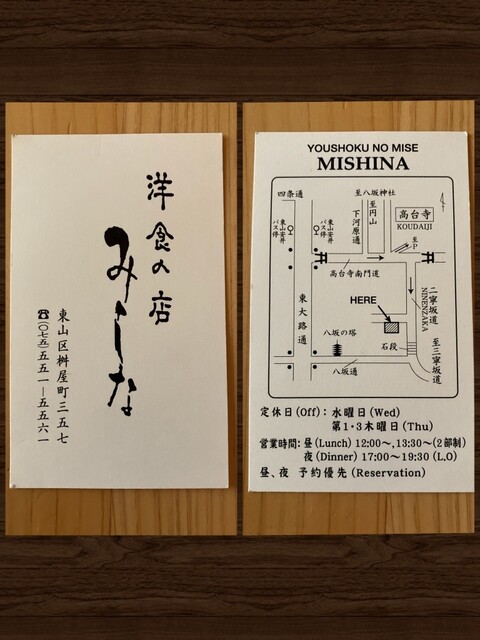 洋食の店
みしな
東山区桝屋町三五七
☎(〇七五)五五一ー五五六一
YOUSHOKU NO MISE
MISHINA
四条通
至八坂神社
東山安井
バス停
東山安井
バス停
下河原通
至円山
高台寺
KOUDAIJI
至P
高台寺南門道
東大路通
HERE
二寧坂道
NINENZAKA
八坂の塔
石段
至三寧坂道
八坂通
定休日(Off): 水曜日(Wed)
第1・3木曜日(Thu)
営業時間: 昼(Lunch) 12:00〜, 13:30〜(2部制)
夜(Dinner) 17:00〜19:30(L.O)
昼、夜 予約優先(Reservation)